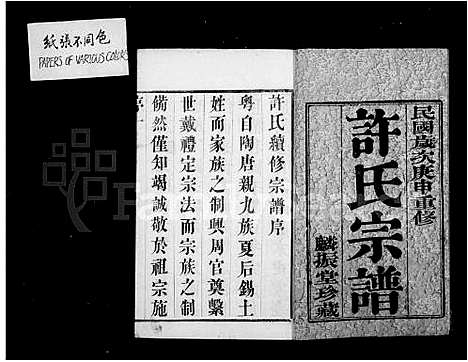 紙張不同色
PAPERS OF VARIOUS COLORS
民國歲次庚申重修
許氏宗譜
麟振堂珍藏
許氏續修宗譜序
粵自陶唐親九族夏后錫土
姓而家族之制興周官奠繫
世戴禮定宗法而宗族之制
備然僅知竭誠敬於祖宗施